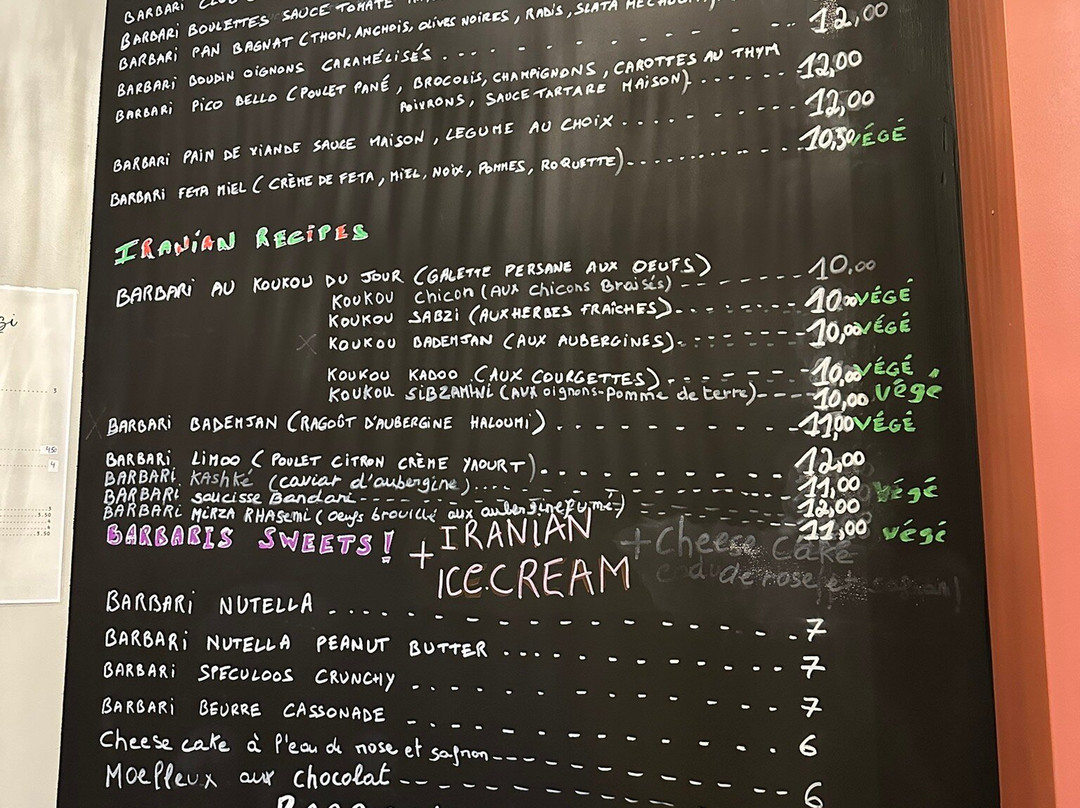 BARBARI
BARBARI BOULETTES SAUCE TOMATE
BARBARI PAN BAGNAT (THON, ANCHOIS, OLIVES NOIRES, RADIS, SLATA MECHOUIA) 12,00
BARBARI BOUDIN OIGNONS CARAMÉLISÉS 12,00
BARBARI PICO BELLO (POULET PANÉ, BROCOLIS, CHAMPIGNONS, CAROTTES AU THYM
POIVRONS, SAUCE TARTARE MAISON) 12,00
BARBARI PAIN DE VIANDE SAUCE MAISON, LEGUME AU CHOIX
BARBARI FETA MIEL (CRÈME DE FETA, MIEL, NOIX, POMMES, ROQUETTE) 10,50 VÉGÉ
IRANIAN RECIPES
BARBARI AU KOUKOU DU JOUR (GALETTE PERSANE AUX OEUFS)
KOUKOU Chicon (AUX Chicons Braisés) 10,00
KOUKOU SABZI (AUX HERBES FRAÎCHES) 10,00 VÉGÉ
KOUKOU BADEMJAN (AUX AUBERGINES) 10,00 VÉGÉ
KOUKOU KADOO (AUX COURGETTES) 10,00 VÉGÉ
KOUKOU SIBZAMINI (AUX oignons-Pomme de terre) 10,00 végé
BARBARI BADEMJAN (RAGOÛT D'AUBERGINE HALOUMI) 11,00 VÉGÉ
BARBARI LIMOO (POULET CITRON CRÈME YAOURT) 12,00
BARBARI KAShké (caviar d'aubergine) 11,00 végé
BARBARI saucisse Bandari 12,00
BARBARI MIRZA RHASEMI (oeufs brouillé aux aubergine fumé) 11,00 végé
BARBARIS SWEETS! + IRANIAN ICECREAM + Cheese cake
eau de rose et safran)
BARBARI NUTELLA 7
BARBARI NUTELLA PEANUT BUTTER 7
BARBARI SPECULOOS CRUNCHY 7
BARBARI BEURRE CASSONADE 6
Cheese cake à l'eau de rose et safran 6
Moelleux aux chocolat